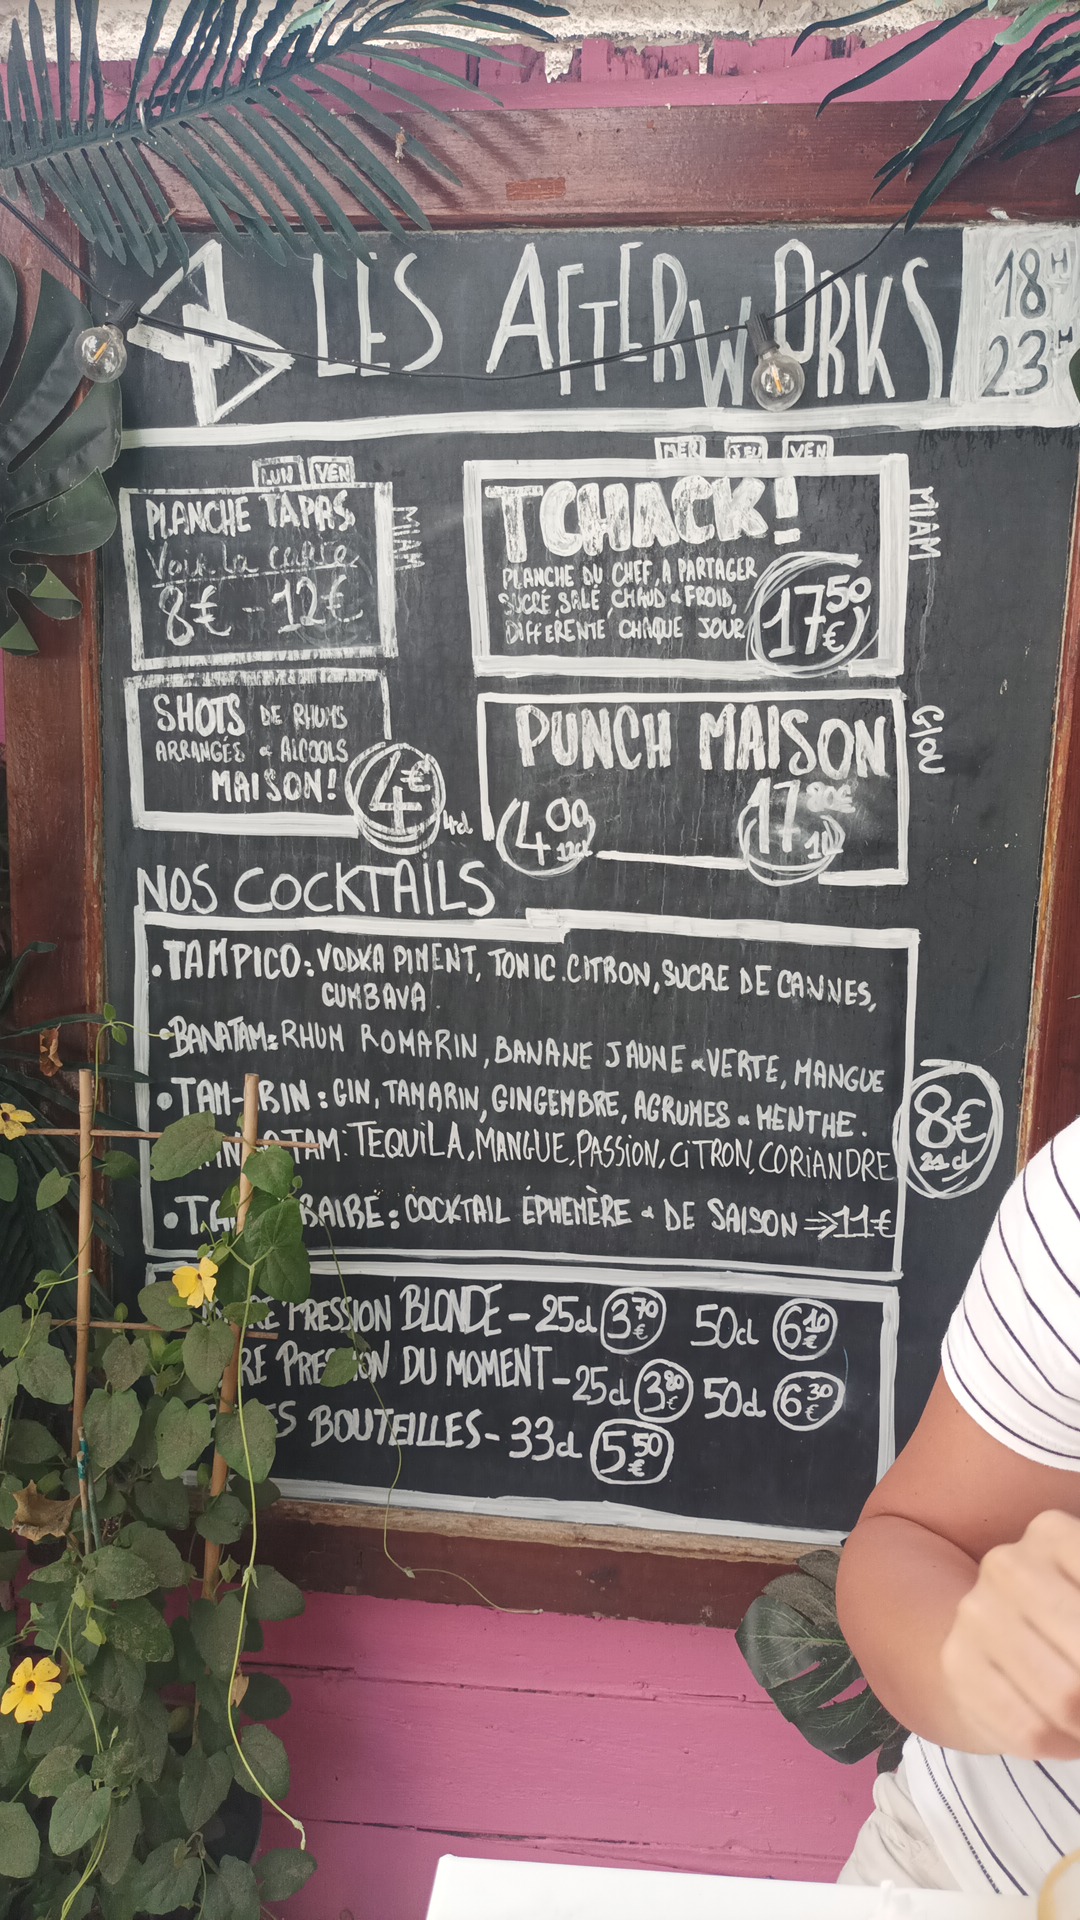 LES AFTERWORKS
18H
23H
LUN VEN
PLANCHE TAPAS
Voir la carte
8€ - 12€
MIAM
MER JEU VEN
TCHACK!
PLANCHE DU CHEF, A PARTAGER
SUCRÉ, SALÉ, CHAUD & FROID,
DIFFERENTE CHAQUE JOUR
17€50
MIAM
SHOTS DE RHUMS
ARRANGÉS & ALCOOLS
MAISON!
4€
4cl
PUNCH MAISON
400 12cl
17 80€ 1l
GLOU
NOS COCKTAILS
• TAMPICO: VODKA PIMENT, TONIC. CITRON, SUCRE DE CANNES,
CUMBAVA.
• BANATAM: RHUM ROMARIN, BANANE JAUNE & VERTE, MANGUE
• TAM- BIN: GIN, TAMARIN, GINGEMBRE, AGRUMES & MENTHE.
TAM: TEQUILA, MANGUE, PASSION, CITRON, CORIANDRE
8€
21cl
• BAIRE: COCKTAIL ÉPHEMÈRE & DE SAISON => 11€
RE PRESSION BLONDE - 25cl 3€70 50cl 6€10
RE PRESSION DU MOMENT - 25cl 3€80 50cl 6€30
ES BOUTEILLES - 33cl 5€50